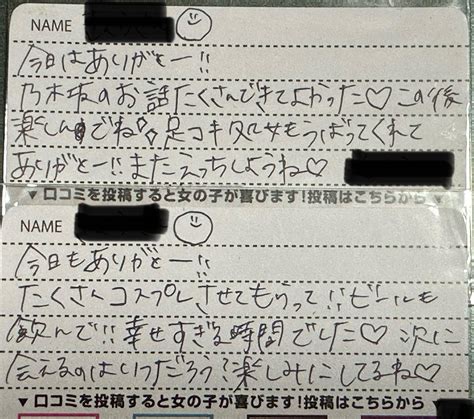 NAME
今日はありがとー!!
乃木坂のお話たくさんできてよかった♡ この後
楽しんでね 足コキ処女もうばってくれて
ありがとー!! またえっちしようね♡
▼口コミを投稿すると女の子が喜びます!投稿はこちらから▼
NAME
今日もありがとー!!
たくさんコスプレさせてもらって!! ビールも
飲んで!! 幸せすぎる時間でした♡ 次に
会えるのはいつだろう? 楽しみにしてるね♡
▼口コミを投稿すると女の子が喜びます!投稿はこちらから